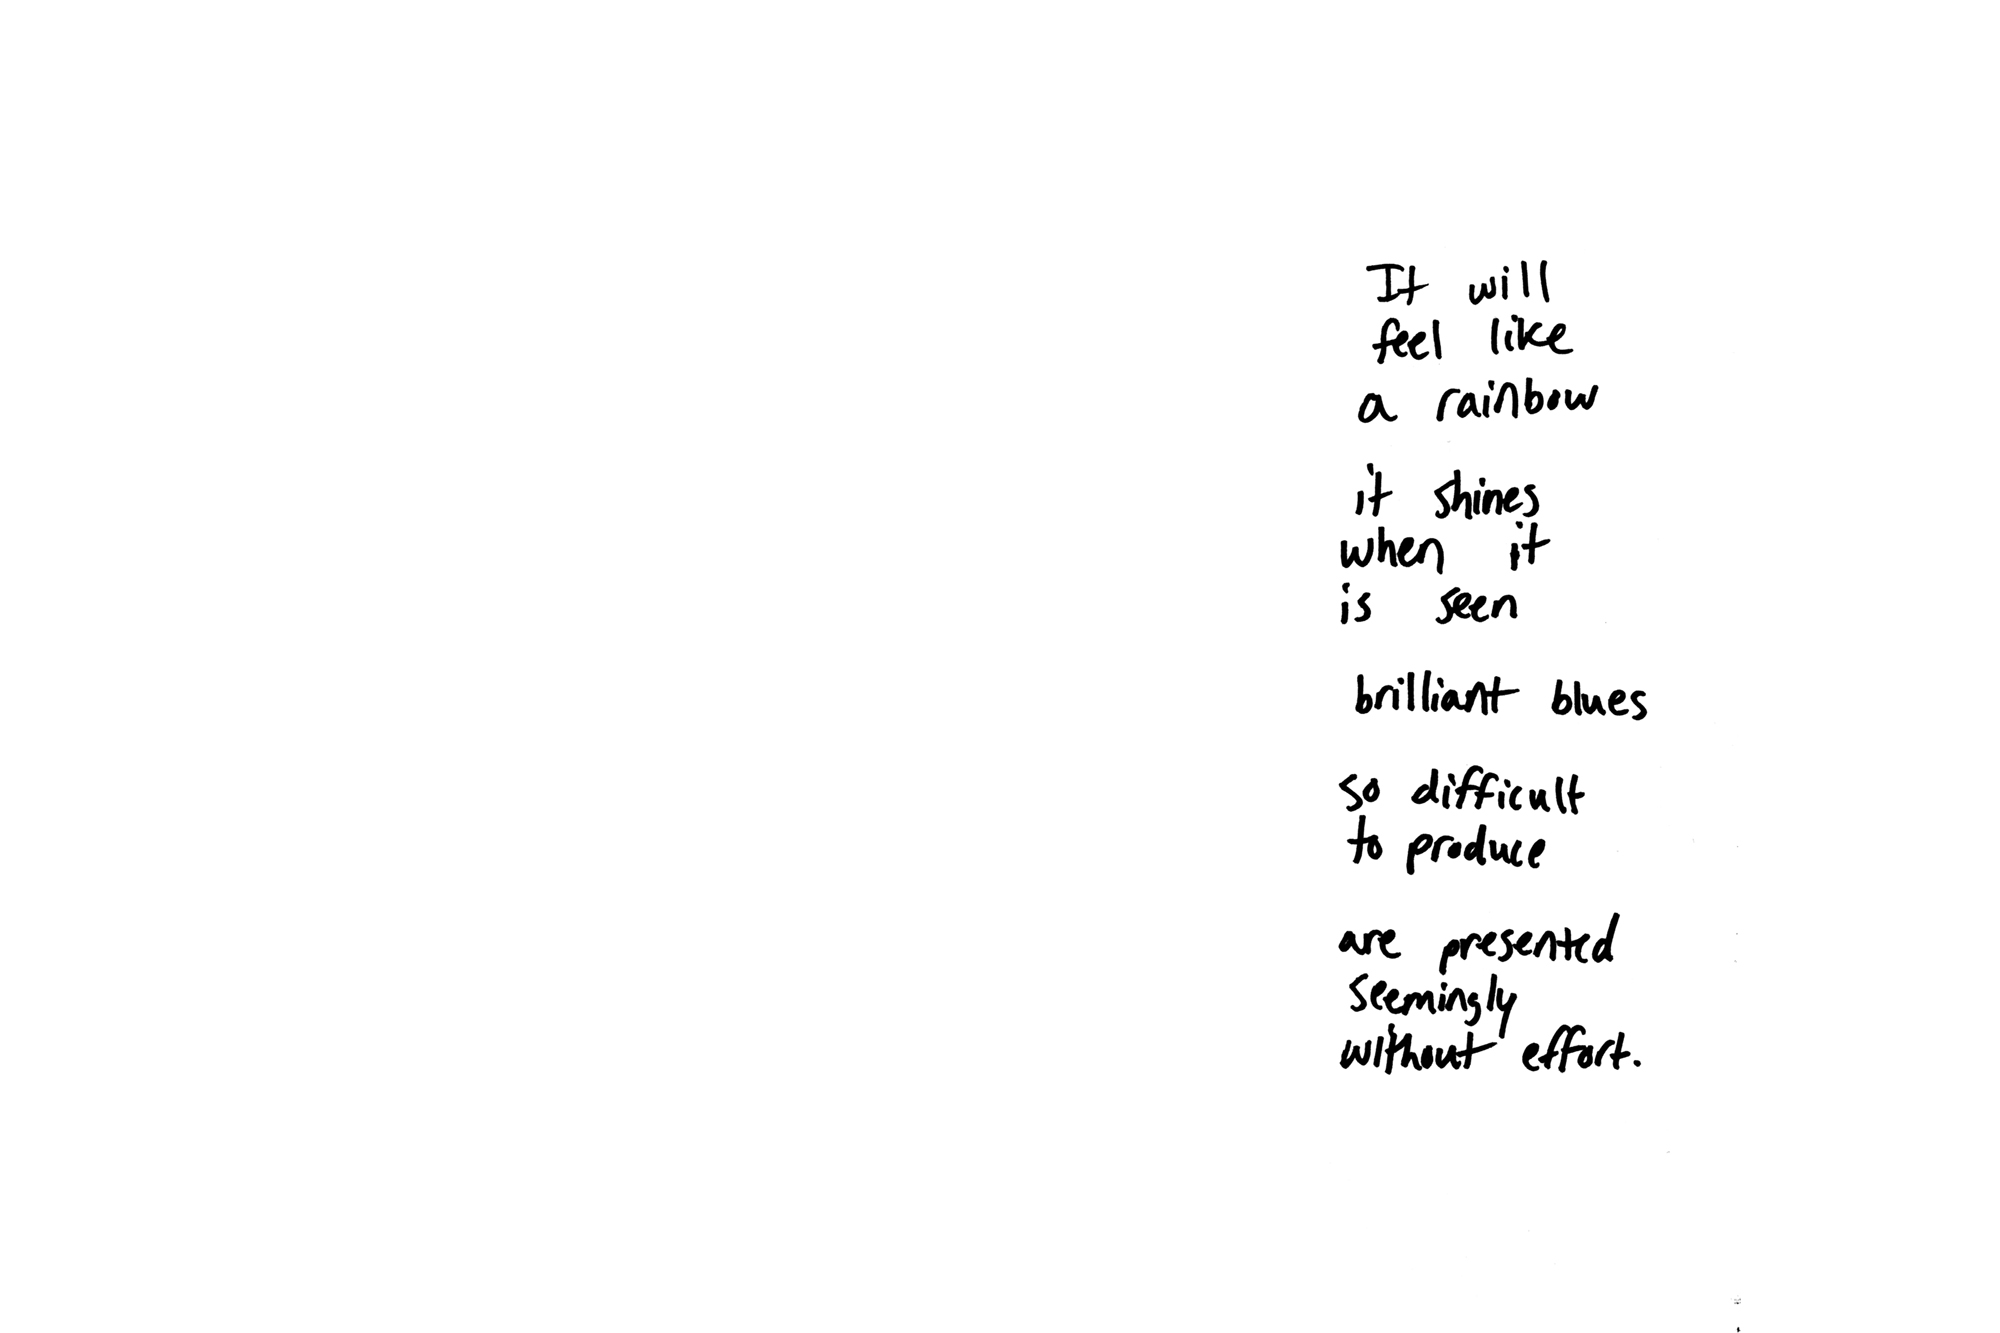 It will
feel like
a rainbow
it shines
when it
is seen
brilliant blues
so difficult
to produce
are presented
seemingly
without effort.